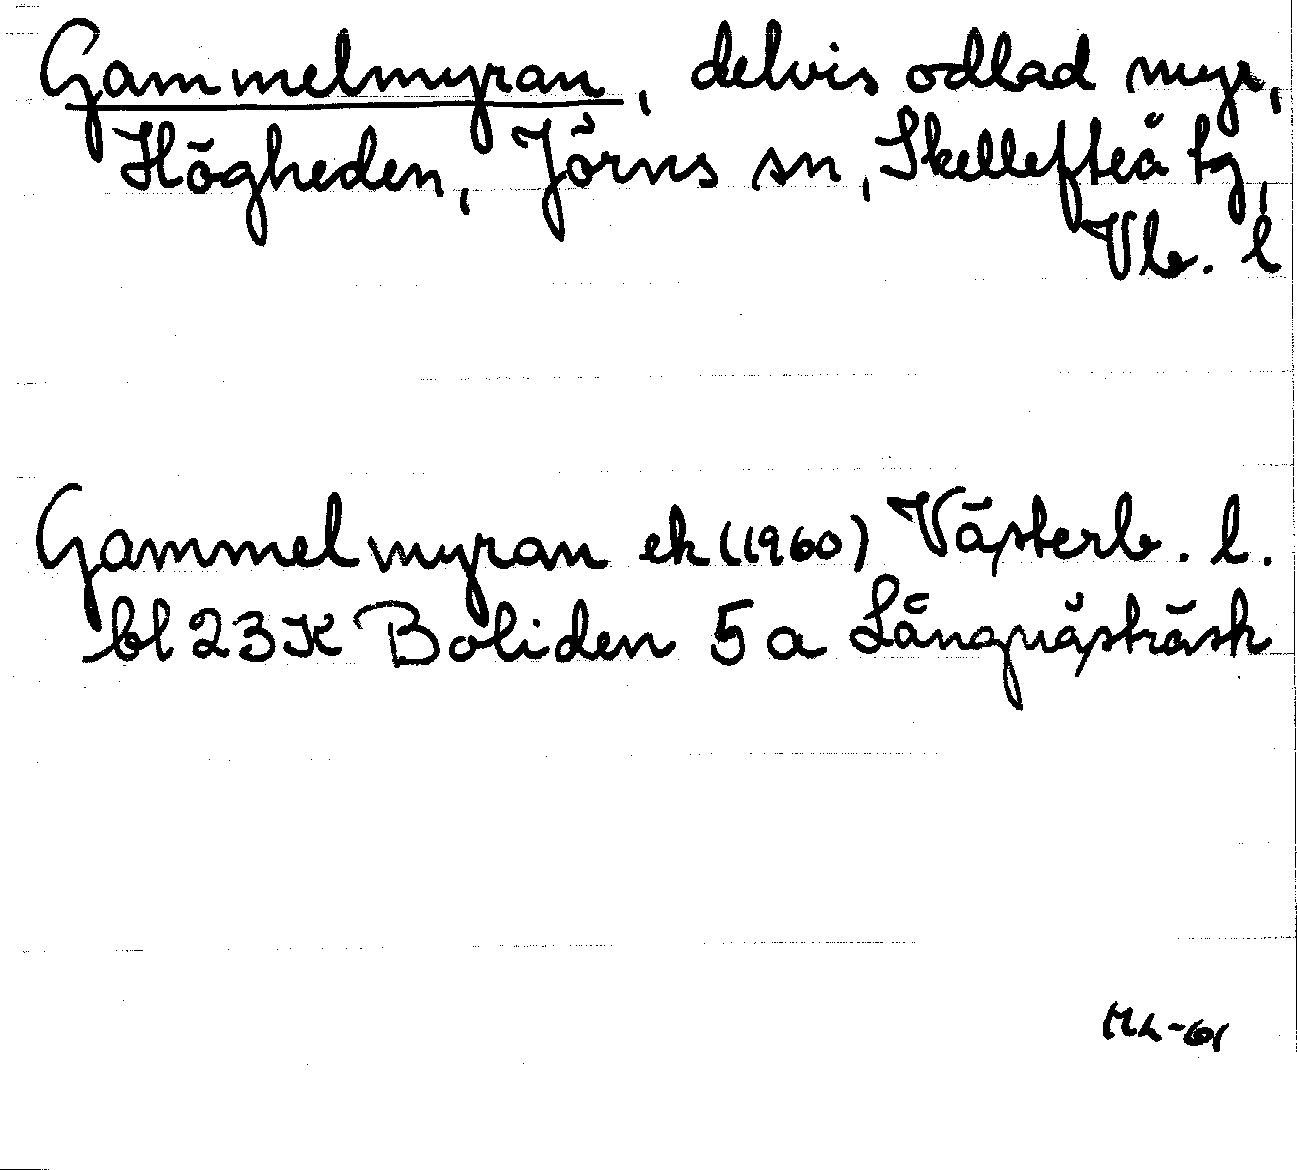 Gammelmyran, delvis odlad myr,
Högheden, Jörns sn, Skellefteå tg,
Vb. l
Gammelmyran ek (1960) Västerb. l.
bl 23K Boliden 5 a Långnästräsk
ML-61